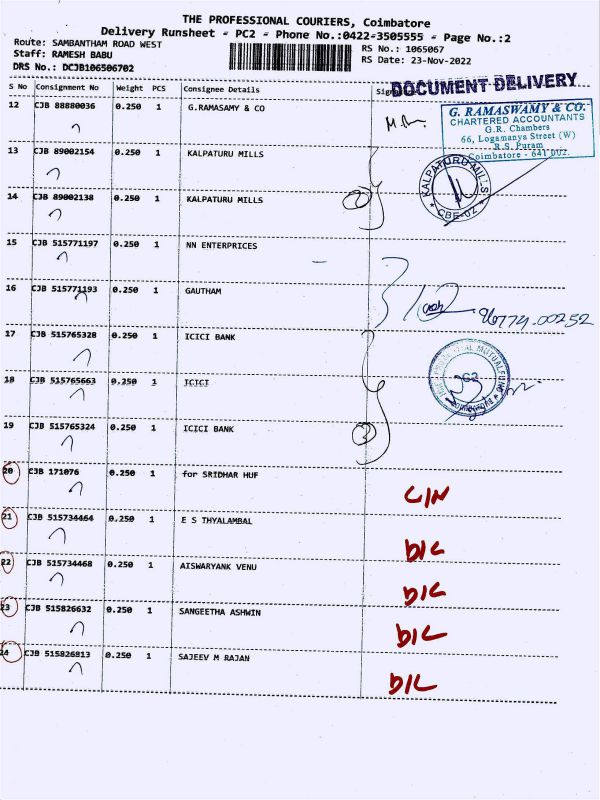 THE PROFESSIONAL COURIERS, Coimbatore
Delivery Runsheet - PC2 - Phone No.:0422-3505555 - Page No.:2
Route: SAMBANTHAM ROAD WEST
Staff: RAMESH BABU
DRS No.: DCJB106506702
RS No.: 1065067
RS Date: 23-Nov-2022
DOCUMENT DELIVERY
S No Consignment No Weight PCS Consignee Details Sign
12 CJB 88880036 0.250 1 G.RAMASAMY & CO
G. RAMASWAMY & CO.
CHARTERED ACCOUNTANTS
G.R. Chambers
66, Logamanya Street (W)
R.S. Puram
Coimbatore - 641 002.
13 CJB 89002154 0.250 1 KALPATURU MILLS
14 CJB 89002138 0.250 1 KALPATURU MILLS
2
KALPATURU MILLS
* CBE-02 *
15 CJB 515771197 0.250 1 NN ENTERPRICES
16 CJB 515771193 0.250 1 GAUTHAM
96774-00252
17 CJB 515765328 0.250 1 ICICI BANK
18 CJB 515765663 0.250 1 ICICI
19 CJB 515765324 0.250 1 ICICI BANK
3
20 CJB 171076 0.250 1 for SRIDHAR HUF
C/N
21 CJB 515734464 0.250 1 E S THYALAMBAL
D/L
22 CJB 515734468 0.250 1 AISWARYANK VENU
D/L
23 CJB 515826632 0.250 1 SANGEETHA ASHWIN
D/L
24 CJB 515826813 0.250 1 SAJEEV M RAJAN
D/L